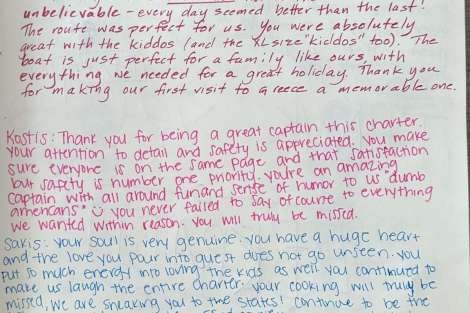 unbelievable - every day seemed better than the last!
The route was perfect for us. You were absolutely
great with the kiddos (and the XL size "kiddos" too). The
boat is just perfect for a family like ours, with
everything we needed for a great holiday. Thank you
for making our first visit to Greece a memorable one.
Kostis: Thank you for being a great captain this charter.
Your attention to detail and safety is appreciated. You make
sure everyone is on the same page and that satisfaction
but safety is number one priority. You're an amazing
captain with all around fun and sense of humor to us "dumb
americans" you never failed to say of course to everything
we wanted within reason. You will truly be missed.
Sakis: Your soul is very genuine. You have a huge heart
and the love you pour into guest does not go unseen. You
put so much energy into loving the kids as well you continued to
make us laugh the entire charter. Your cooking will truly be
missed, we are sneaking you to the States! Continue to be the